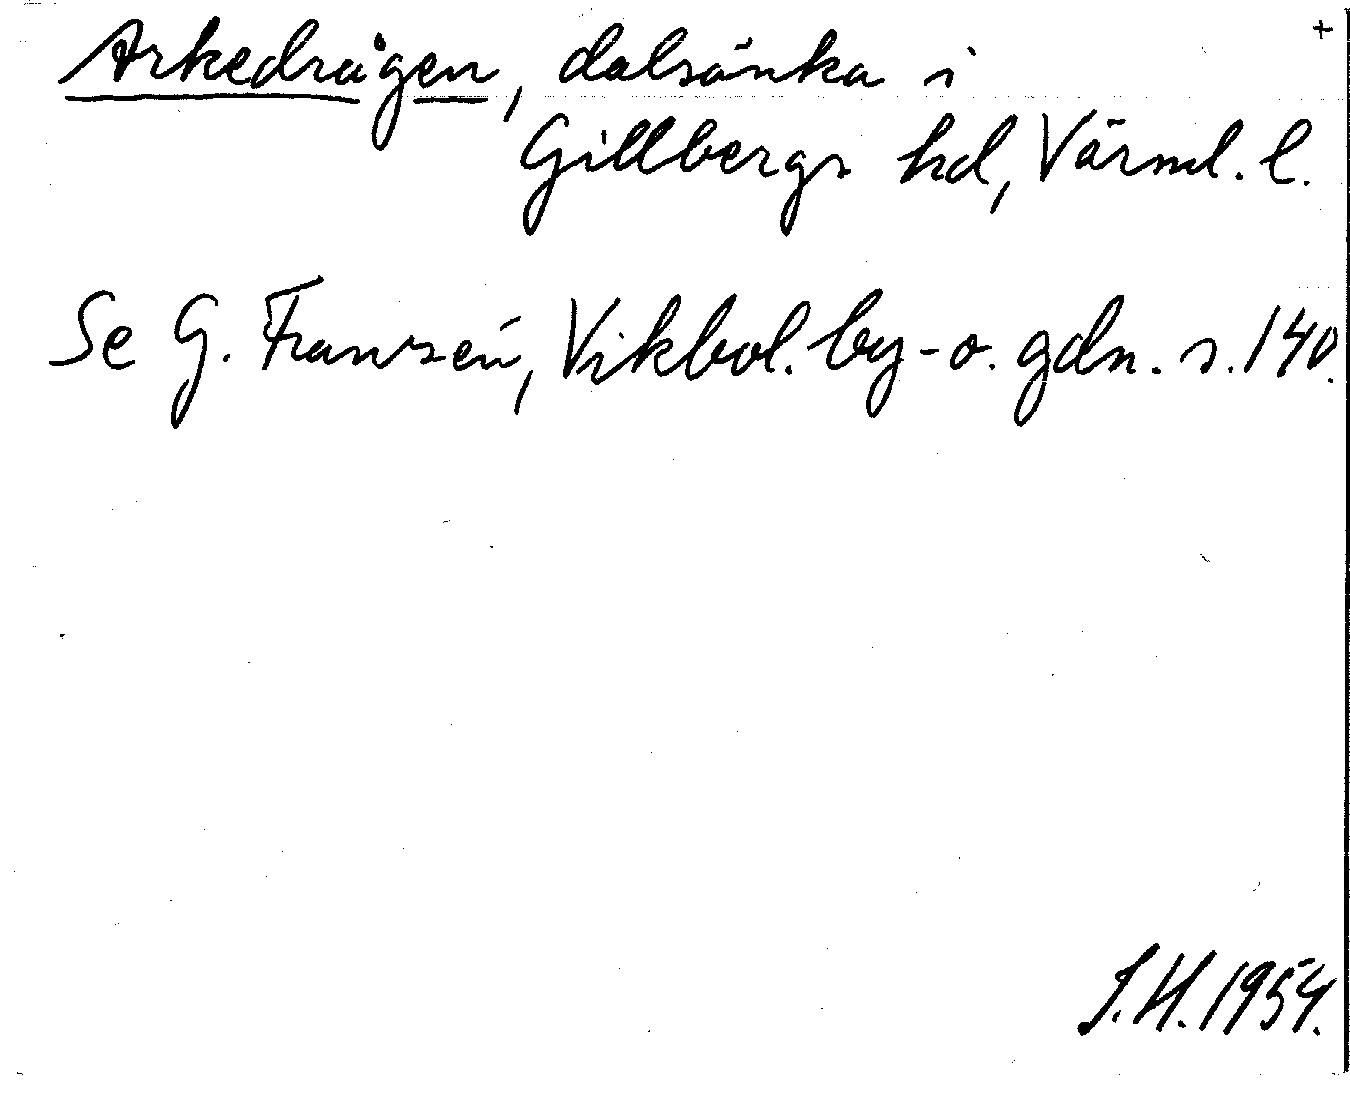 +
Arkedrågen, dalsänka i
Gillbergs hd, Värml. l.
Se G. Franzén, Vikbol. by- o. gdn. s. 140.
S.H. 1954.